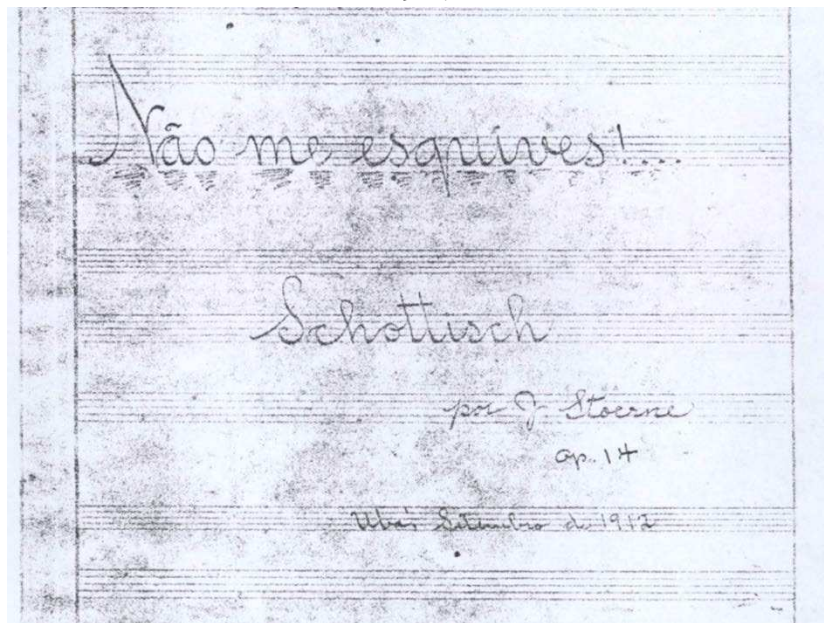 Não me esquives!....
Schottisch
por J. Stoerne
op. 14
Ubá, Setembro de 1912